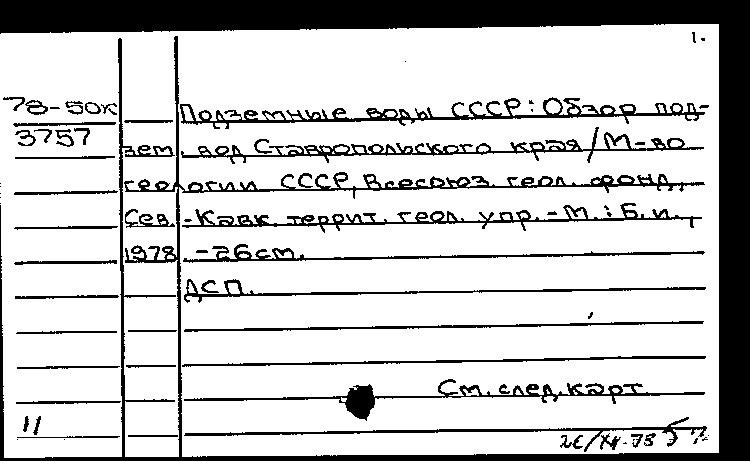 1.
78-50к
3757
Подземные воды СССР: Обзор под-
зем. вод Ставропольского края/М-во
геологии СССР, Всесоюз. геол. фонд,
Сев.-Кавк. террит. геол. упр. -М.: Б. и.,
1978. -26см.
ДСП.
См. след. карт
11